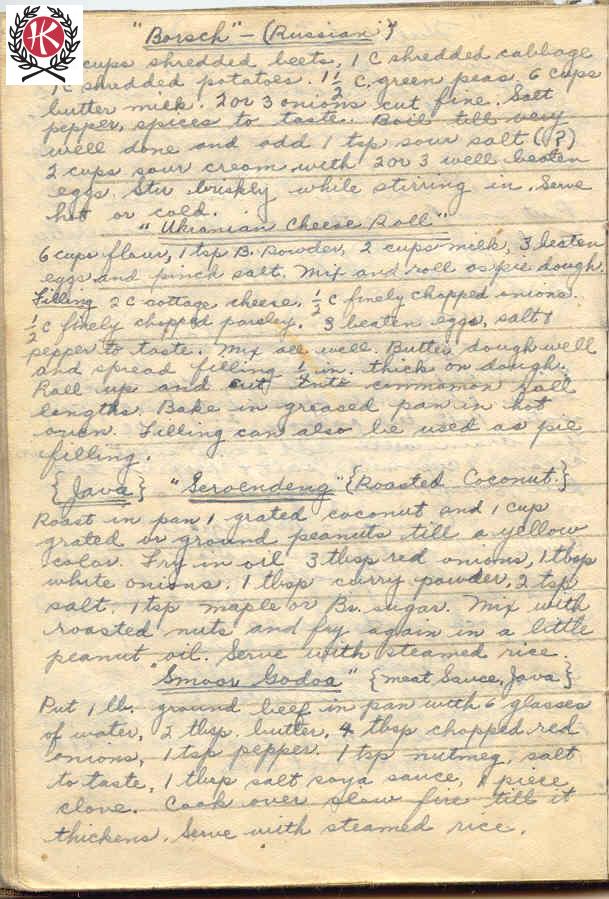 HK
"Borsch" - (Russian)
cups shredded beets, 1 C shredded cabbage
1 C shredded potatoes. 1 1/2 C. green peas, 6 cups
butter milk. 2 or 3 onions cut fine. Salt
pepper, spices to taste. Boil till very
well done and add 1 tsp sour salt (?)
2 cups sour cream with 2 or 3 well beaten
eggs. Stir briskly while stirring in. Serve
hot or cold.
"Ukranian Cheese Roll"
6 cups flour, 1 tsp B. Powder, 2 cups milk, 3 beaten
eggs and pinch salt. Mix and roll as pie dough.
Filling 2 C cottage cheese, 1/2 C finely chopped onions.
1/2 C finely chopped parsley. 3 beaten eggs, salt &
pepper to taste. Mix all well. Butter dough well
and spread filling 1/2 in. thick on dough.
Roll up and cut into cinnamon roll
lengths. Bake in greased pan in hot
oven. Filling can also be used as pie
filling.
{Java} "Seroendeng" {Roasted Coconut.}
Roast in pan 1 grated coconut and 1 cup
grated or ground peanuts till a yellow
color. Fry in oil 3 tbsp red onions, 1 tbsp
white onions. 1 tbsp curry powder, 2 tsp
salt. 1 tsp maple or Br. sugar. Mix with
roasted nuts and fry again in a little
peanut oil. Serve with steamed rice.
"Smoor Godoa" {meat Sauce, Java}
Put 1 lb. ground beef in pan with 6 glasses
of water, 2 tbsp. butter, 4 tbsp chopped red
onions, 1 tsp pepper. 1 tsp nutmeg, salt
to taste, 1 tbsp salt soya sauce, 1 piece
clove. Cook over slow fire till it
thickens. Serve with steamed rice.